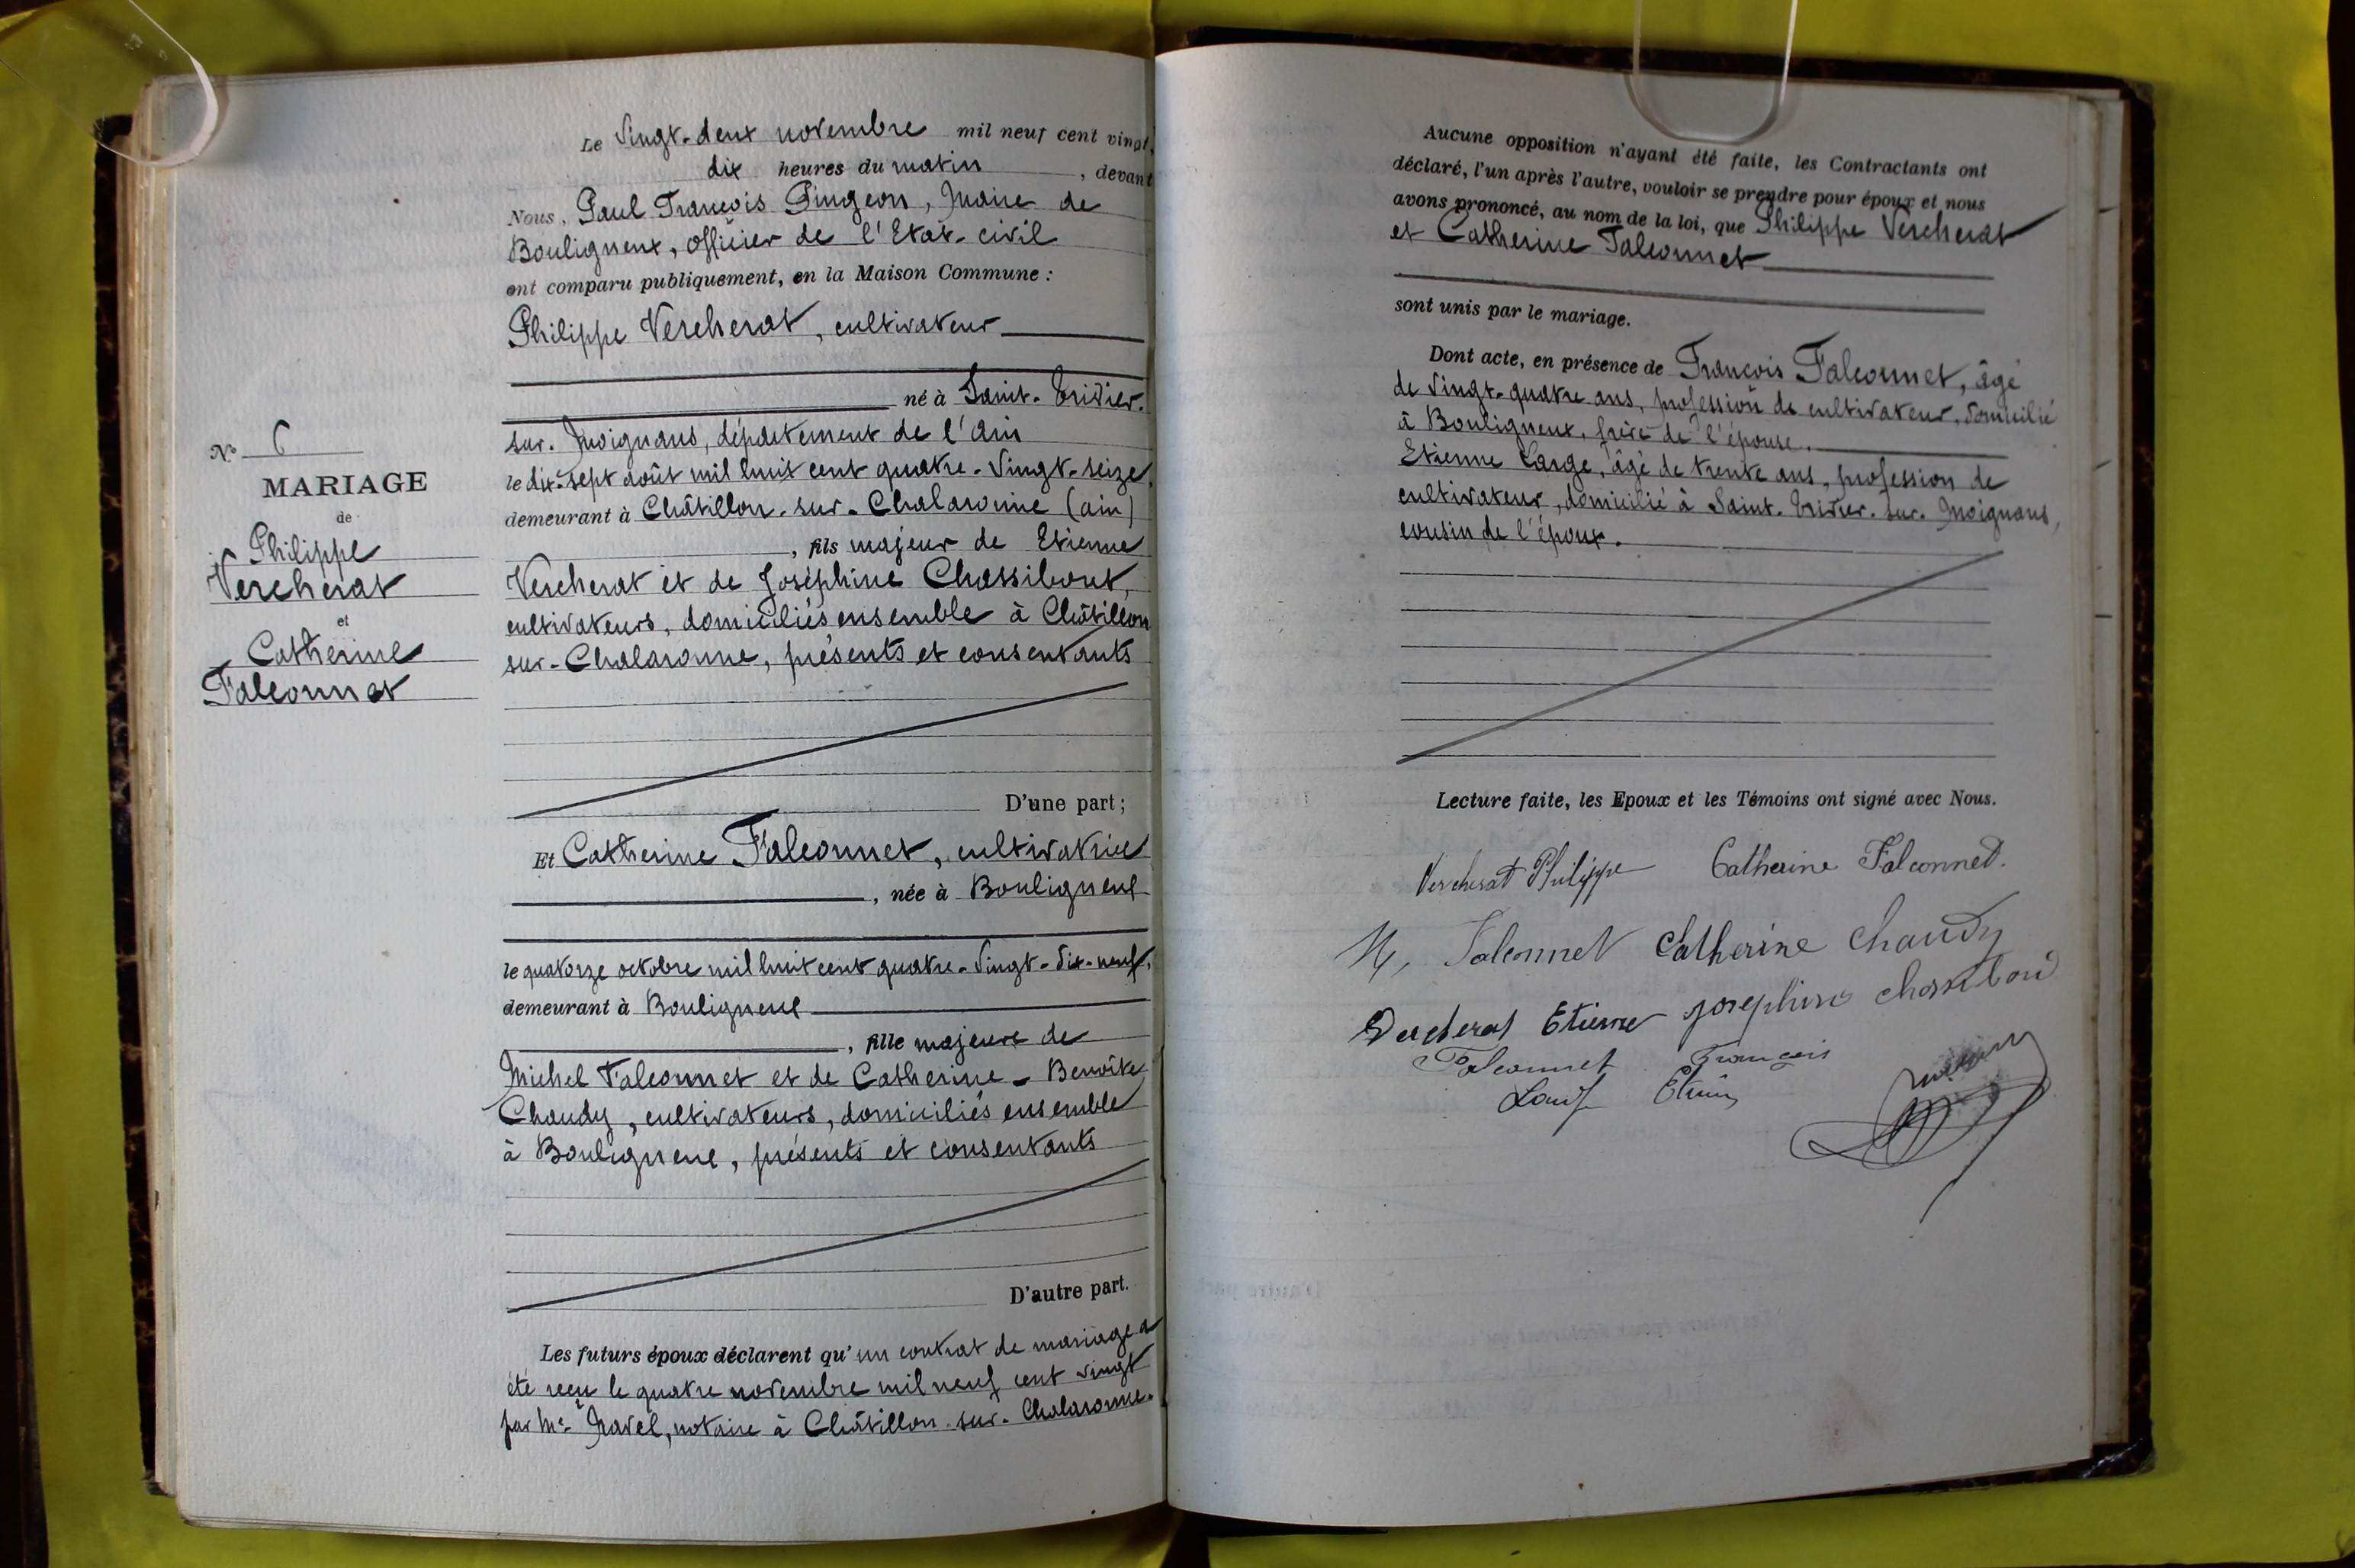 Le Vingt-deux novembre mil neuf cent vingt,
dix heures du matin, devant
Nous, Paul François Pingeon, Maire de
Bouligneux, officier de l'Etat-civil
ont comparu publiquement, en la Maison Commune :
Philippe Vercherat, cultivateur
né à Saint-Trivier-
sur-Moignans, département de l'ain
le dix-sept août mil huit cent quatre-vingt-seize,
demeurant à Châtillon-sur-Chalaronne (ain)
, fils majeur de Etienne
Vercherat et de Joséphine Chassibout,
cultivateurs, domiciliés ensemble à Châtillon
sur-Chalaronne, présents et consentants
D'une part ;
Et Catherine Falconnet, cultivatrice
, née à Bouligneux
le quatorze octobre mil huit cent quatre-vingt-dix-neuf,
demeurant à Bouligneux
, fille majeure de
Michel Falconnet et de Catherine-Benoîte
Chaudy, cultivateurs, domiciliés ensemble
à Bouligneux, présents et consentants
D'autre part.
Les futurs époux déclarent qu'un contrat de mariage a
été reçu le quatre novembre mil neuf cent vingt
par Me Navel, notaire à Châtillon-sur-Chalaronne.
No 6
MARIAGE
de
Philippe
Vercherat
et
Catherine
Falconnet
Aucune opposition n'ayant été faite, les Contractants ont
déclaré, l'un après l'autre, vouloir se prendre pour époux et nous
avons prononcé, au nom de la loi, que Philippe Vercherat
et Catherine Falconnet
sont unis par le mariage.
Dont acte, en présence de François Falconnet, âgé
de vingt-quatre ans, profession de cultivateur, domicilié
à Bouligneux, frère de l'épouse.
Etienne Large, âgé de trente ans, profession de
cultivateur, domicilié à Saint-Trivier-sur-Moignans,
cousin de l'époux.
Lecture faite, les Epoux et les Témoins ont signé avec Nous.
Vercherat Philippe Catherine Falconnet.
M, Falconnet Catherine Chaudy
Vercherat Etienne Josephine chassibout
Falconnet François